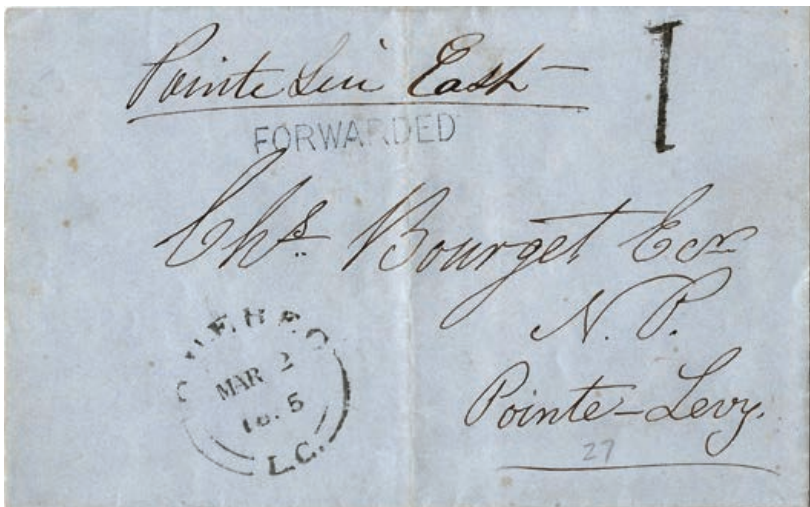 Pointe Levi East
1
FORWARDED
Chs. Bourget Ecr
N. P.
Pointe-Levy.
27
QUEBEC
MAR 2
18 5
L.C.